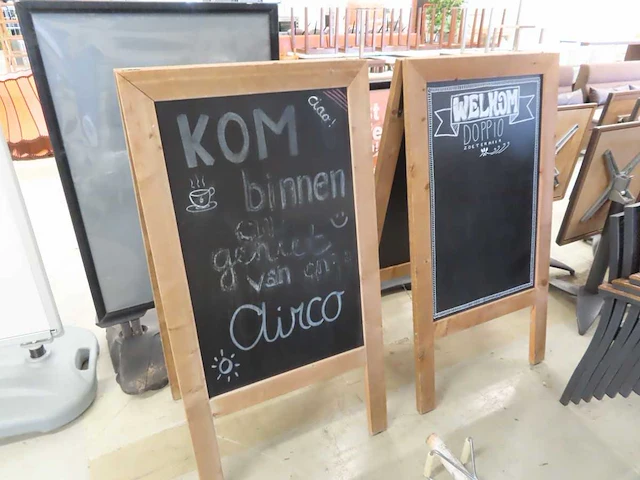 Ciao!
KOM
binnen
en
geniet
van onze
airco
WELKOM
DOPPIO
ZOETERMEER